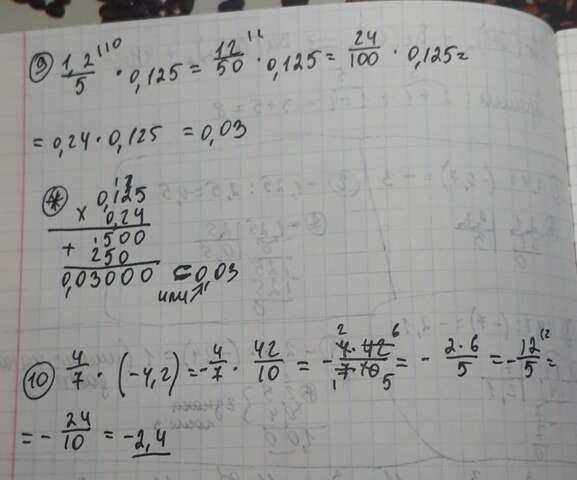 ⑨ 1,2/5 |·10 · 0,125 = 12/50 |·2 · 0,125 = 24/100 · 0,125 =
= 0,24 · 0,125 = 0,03
* 0,125
× 0,24
1500
+ 250
0,03000 = 0,03
или
⑩ 4/7 · (-4,2) = -4/7 · 42/10 = - 4·42/7·10 = - 2·6/5 = - 12/5 |·2 =
= - 24/10 = -2,4